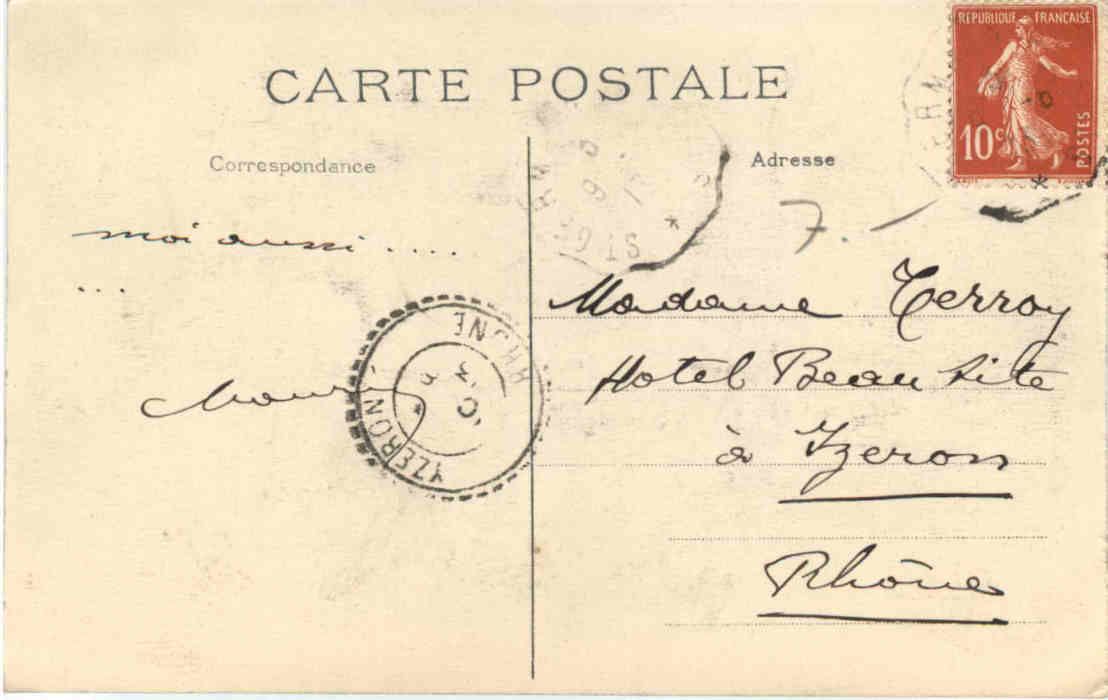 CARTE POSTALE
REPUBLIQUE FRANÇAISE
10c
POSTES
Correspondance
Adresse
moi aussi ....
...
7.
Madame Terroy
Hotel Beau Site
à Yzeron
Rhône
YZERON
RHONE